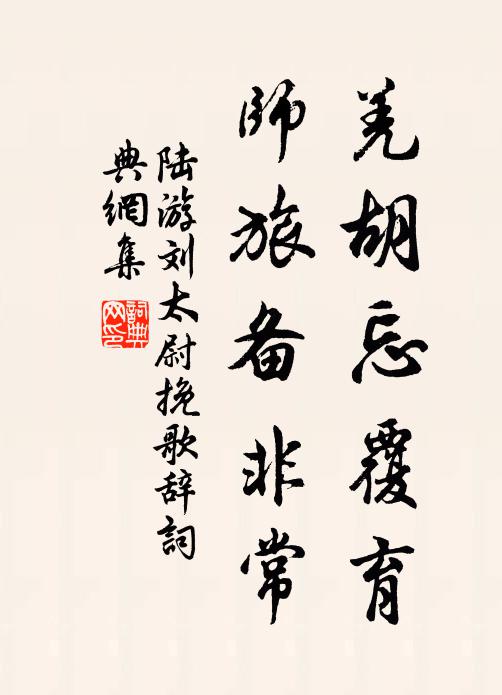 羌胡忘覆育
师旅备非常
陆游刘太尉挽歌辞词
典網集
詞典
网印